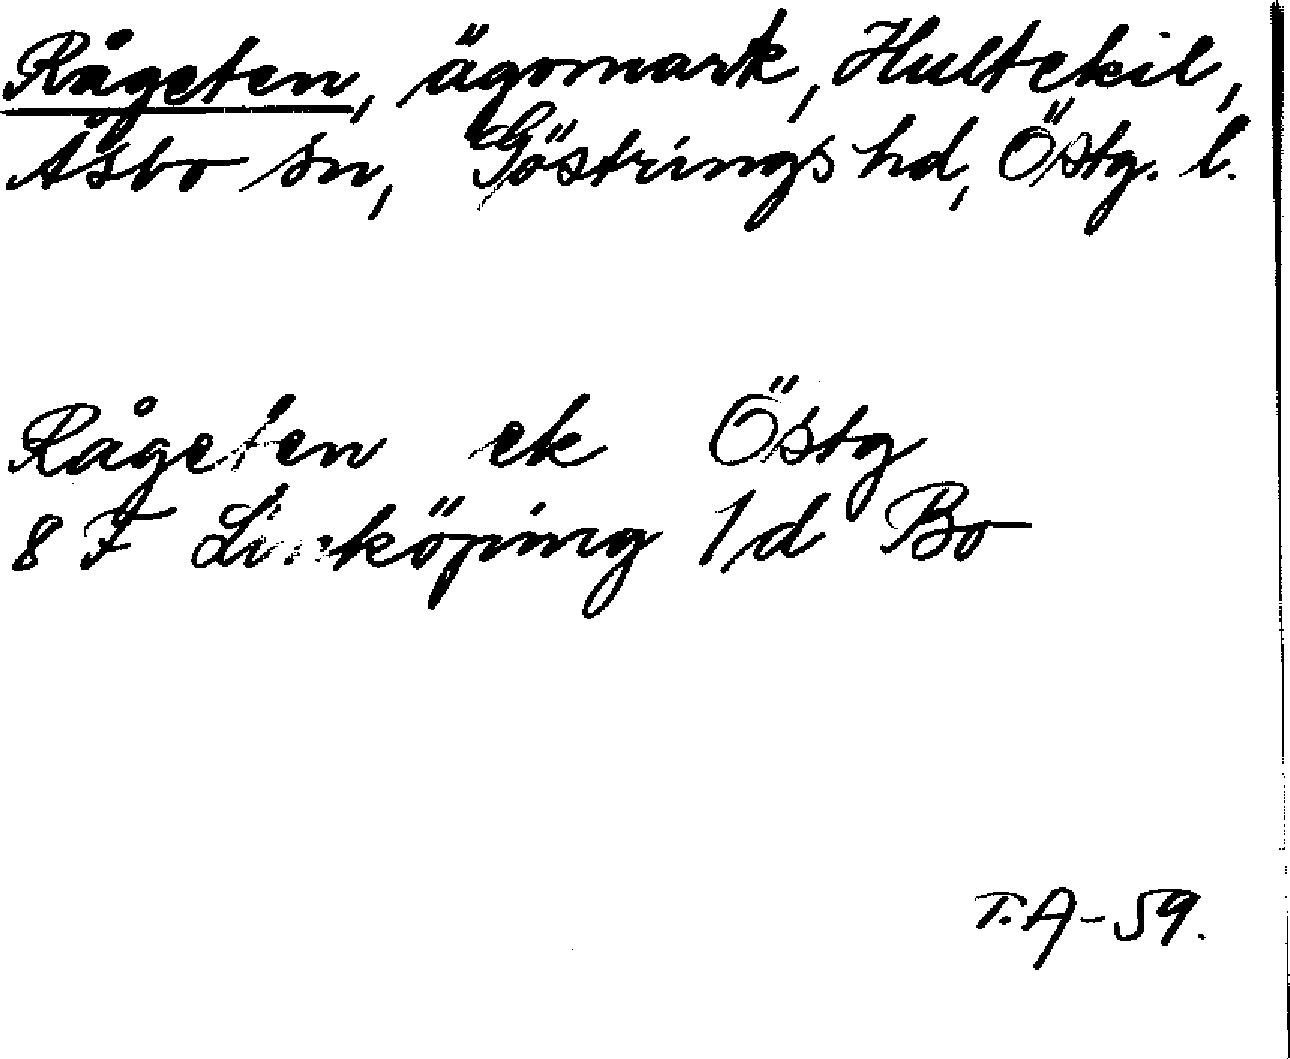 Rågeten, ägomark, Hultekil,
Åsbo sn, Göstrings hd, Östg. l.
Rågeten ek Östg
8 F Linköping 1d Bo
T.A-59.